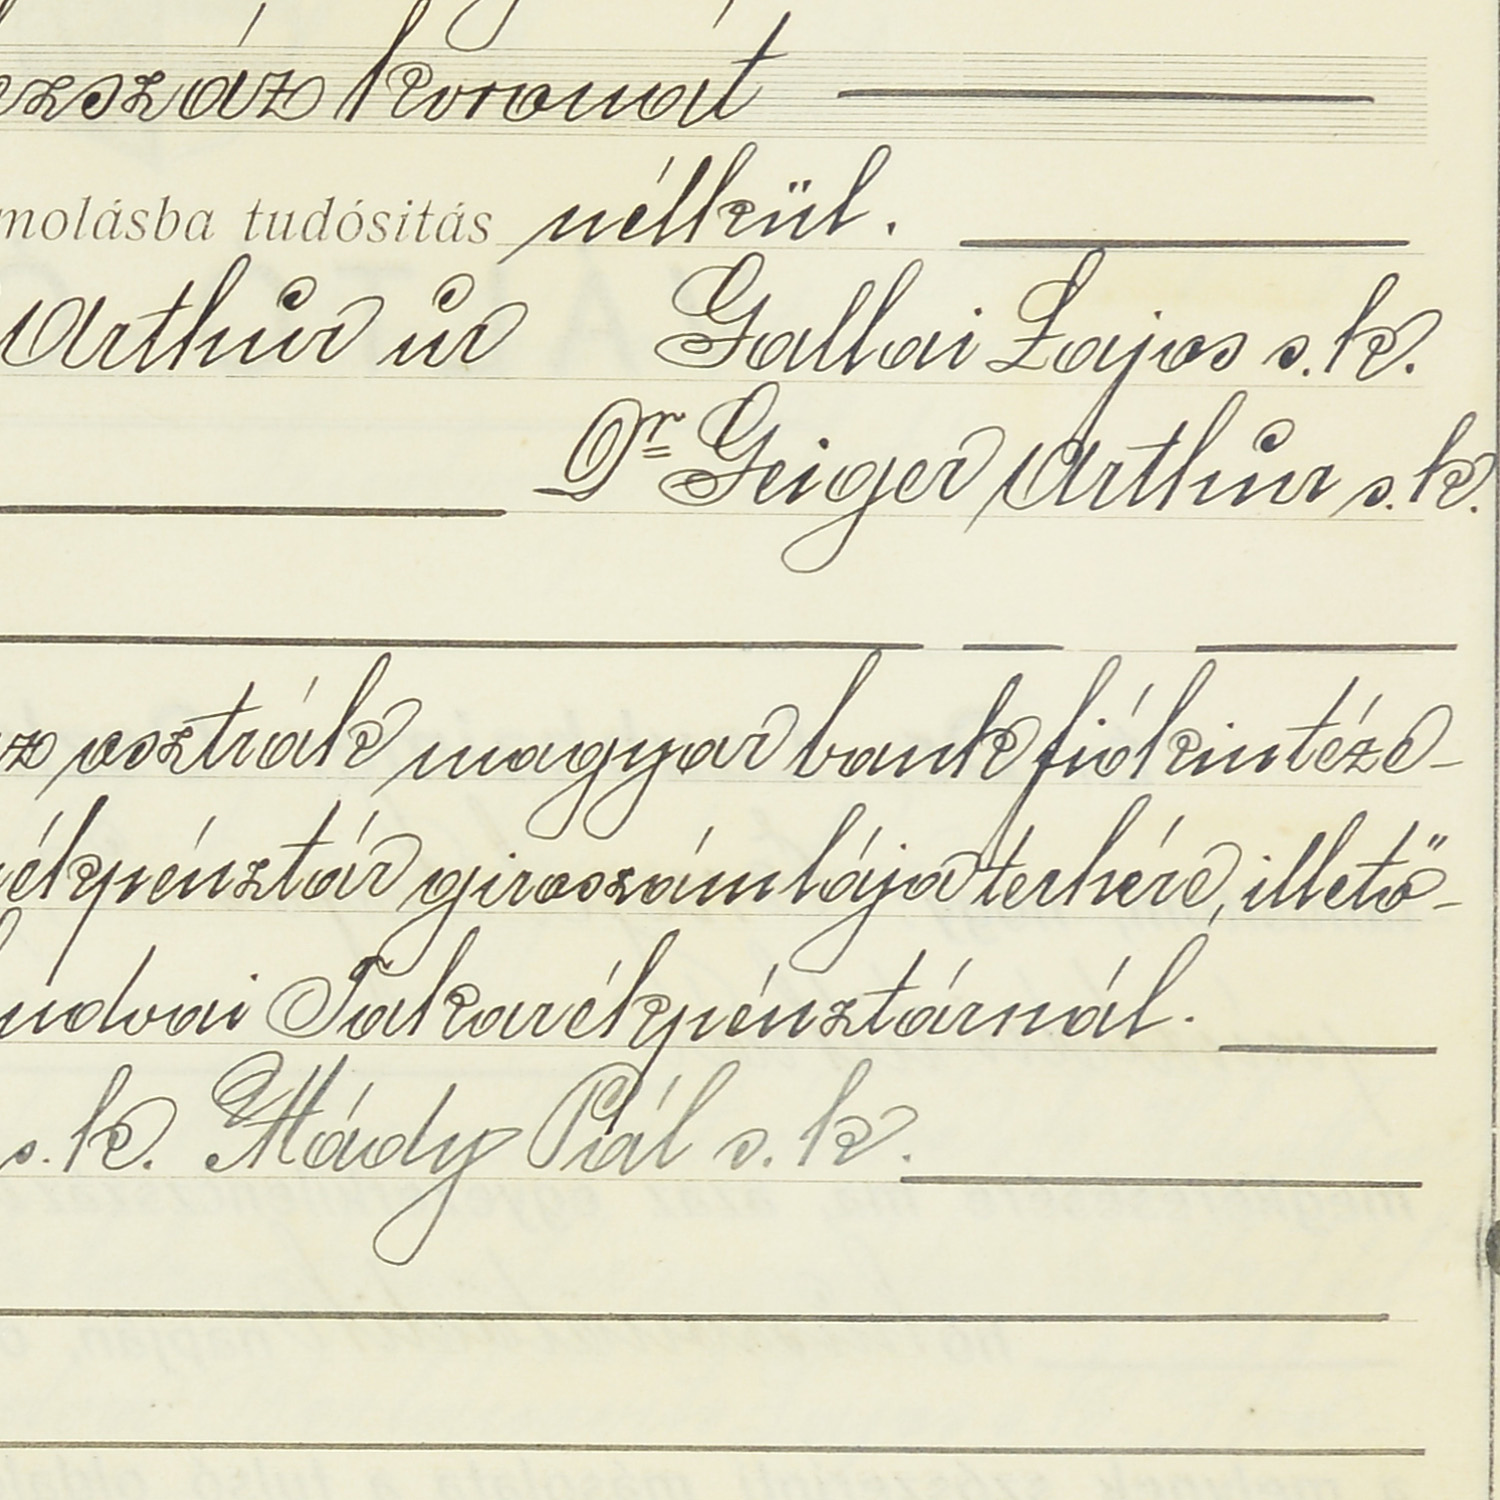 koronát
molásba tudósitás nélkül.
Arthur úr Gallai Lajos s. k.
Dr Geiger Arthur s. k.
osztrák magyar bank fiókintéze-
ékpénztár giroszámlája terhére, illető-
udvai Takarékpénztárnál.
s. k. Mády Pál s. k.